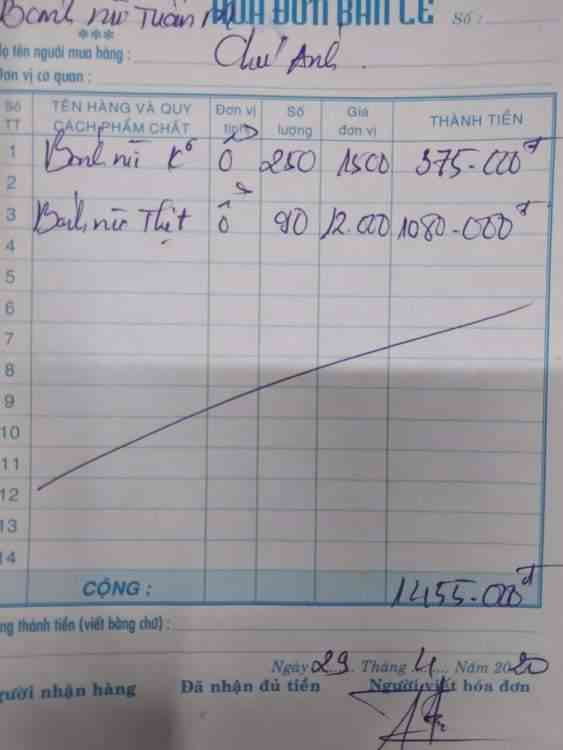 Bánh mì Tuấn HÓA ĐƠN BÁN LẺ Số :
***
Họ tên người mua hàng : Chú Anh.
Đơn vị cơ quan :
Số TT TÊN HÀNG VÀ QUY CÁCH PHẨM CHẤT Đơn vị tính Số lượng Giá đơn vị THÀNH TIỀN
1 Bánh mì Kô ổ 250 1500 375.000đ
2
3 Bánh mì Thịt ổ 90 12.000 1080.000đ
4
5
6
7
8
9
10
11
12
13
14
CỘNG : 1455.000đ
ng thành tiền (viết bằng chữ) :
Ngày 29. Tháng 4 .... Năm 2020
gười nhận hàng Đã nhận đủ tiền Người viết hóa đơn